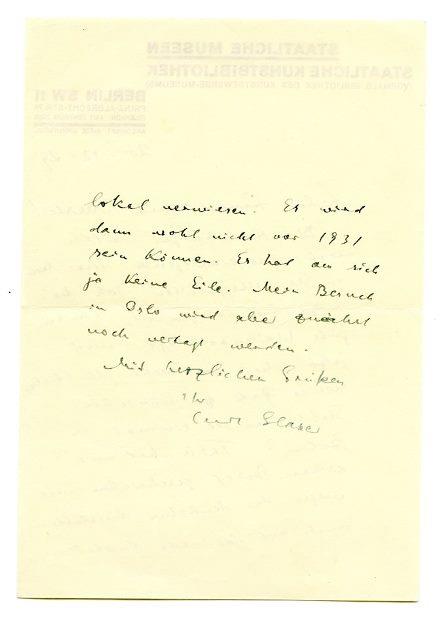 lokal verwiesen. Es wird
dann wohl nicht vor 1931
sein können. Es hat an sich
ja keine Eile. Mein Besuch
in Oslo wird aber zunächst
noch vertagt werden.
Mit herzlichen Grüßen
Ihr
Curt Glaser
STAATLICHE MUSEEN
STAATLICHE KUNSTBIBLIOTHEK
(VORMALS BIBLIOTHEK DES KUNSTGEWERBE-MUSEUMS)
BERLIN SW 11
PRINZ-ALBRECHT-STR. 7A